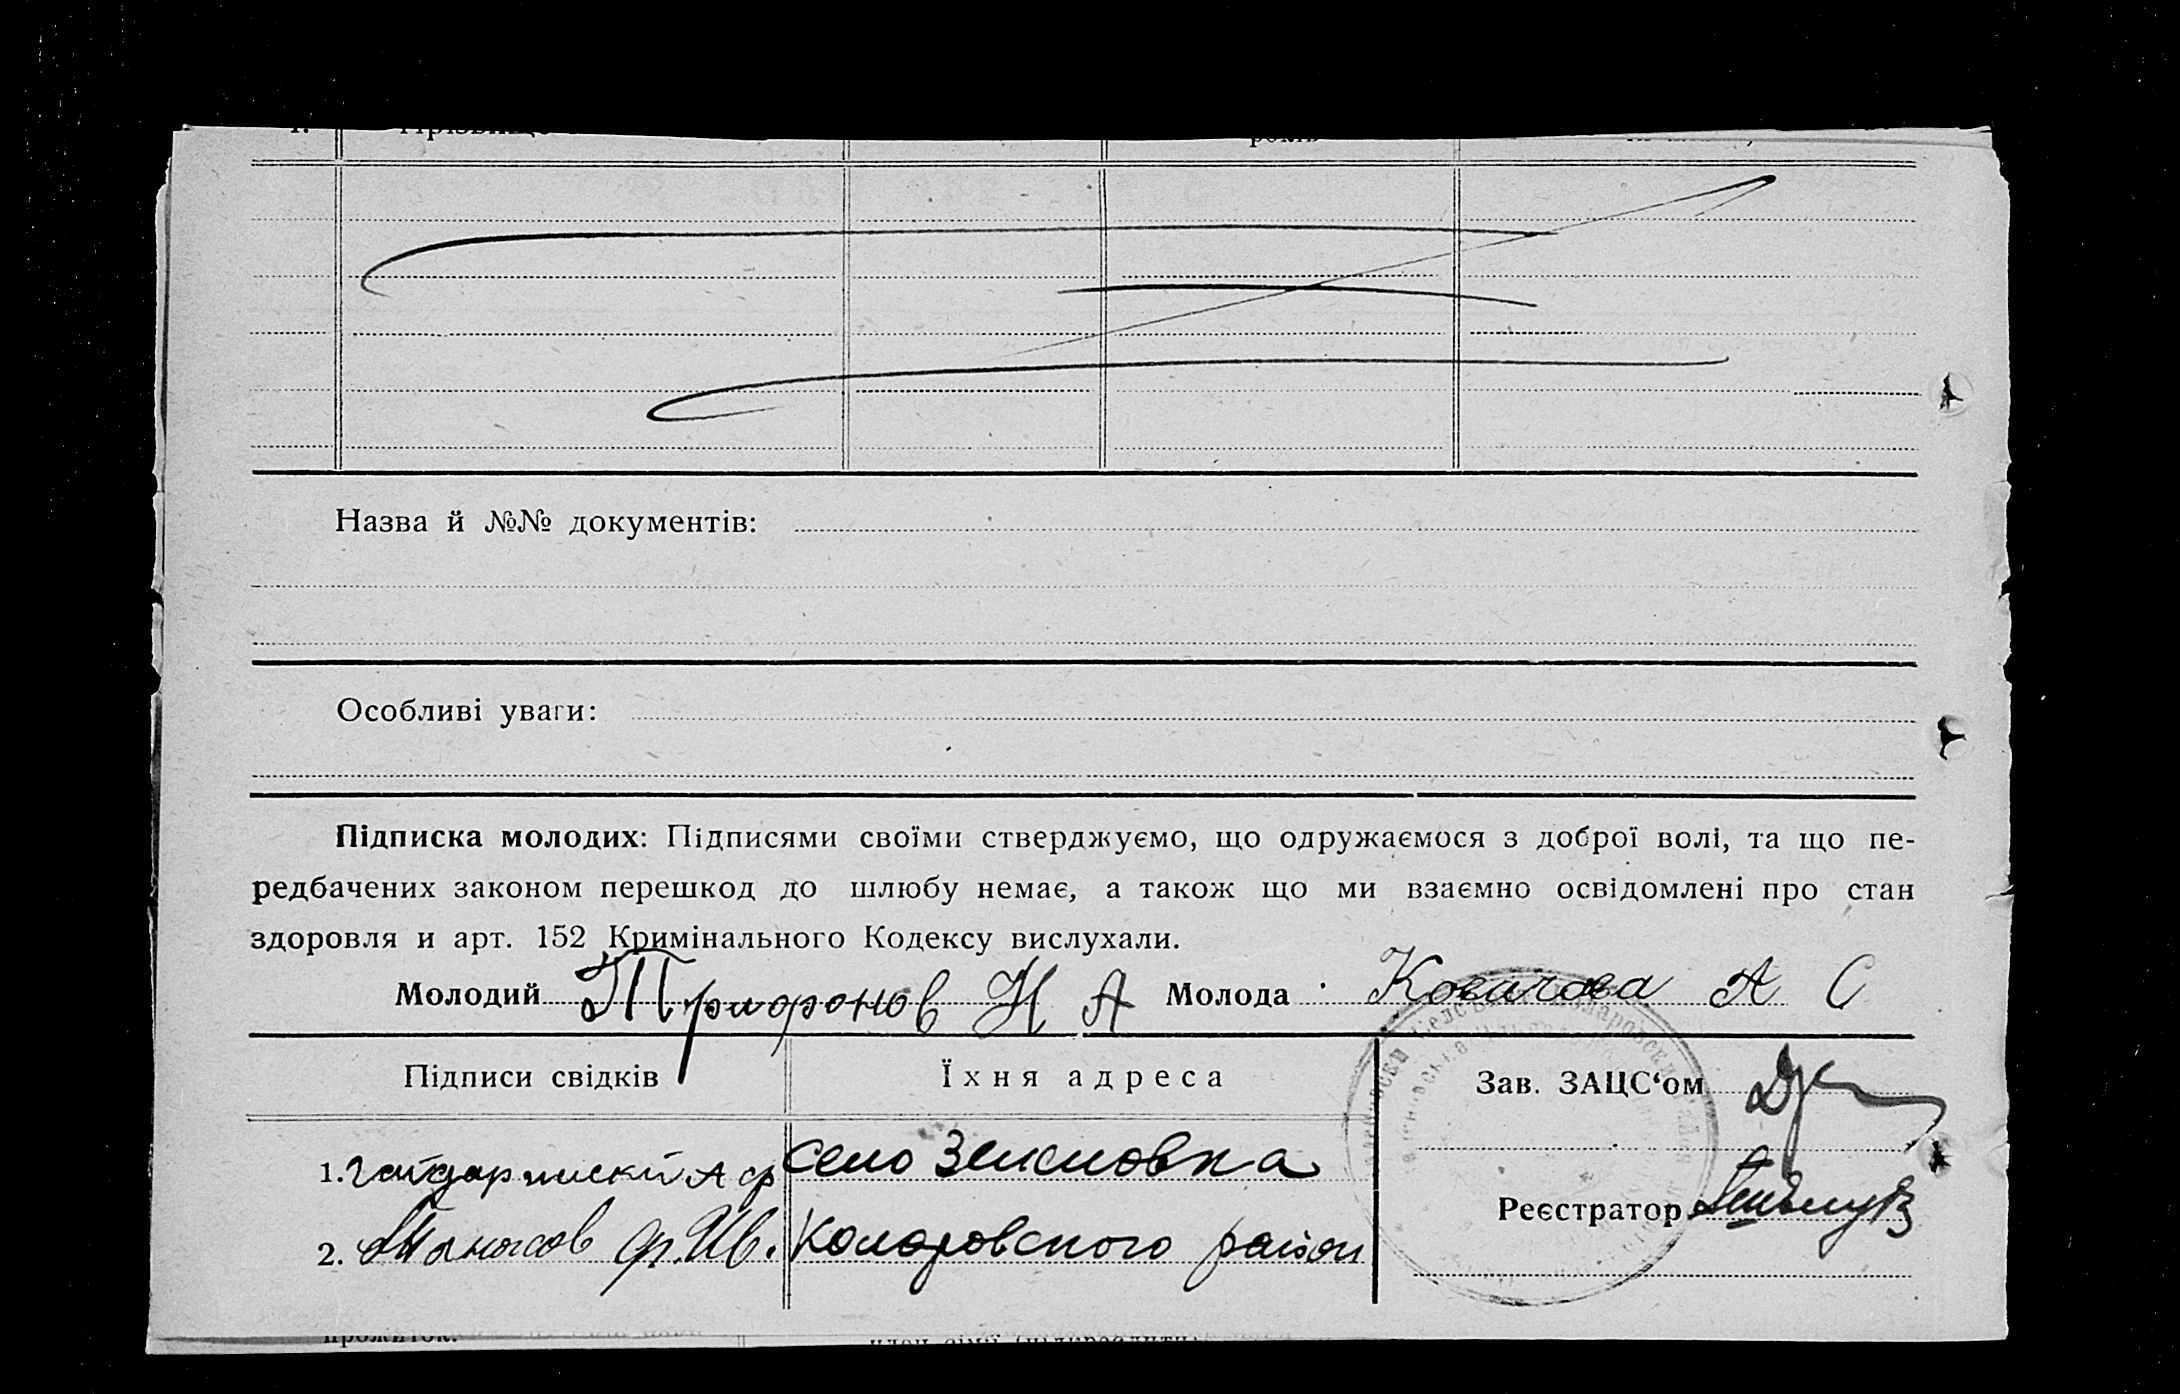 Назва й №№ документів:
Особливі уваги:
Підписка молодих: Підписями своїми стверджуємо, що одружаємося з доброї волі, та що пе-
редбачених законом перешкод до шлюбу немає, а також що ми взаємно освідомлені про стан
здоровля и арт. 152 Кримінального Кодексу вислухали.
Молодий Трифонов Н А Молода Ковачова А С
Підписи свідків Їхня адреса Зав. ЗАЦС‘ом
1. А ф село
2. Танасов ф. Ив. Коларовского район
Реєстратор